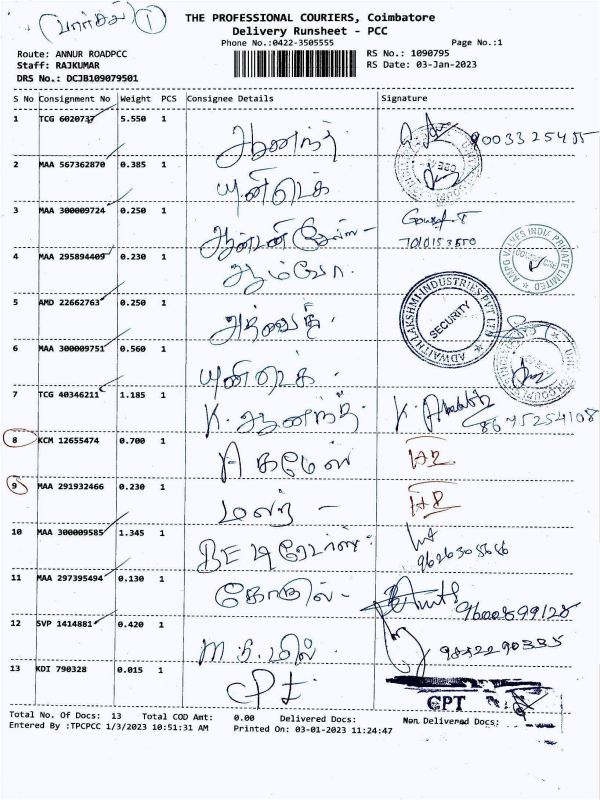 (பார்சல்) 1
THE PROFESSIONAL COURIERS, Coimbatore
Delivery Runsheet - PCC
Phone No.:0422-3505555 Page No.:1
Route: ANNUR ROADPCC RS No.: 1090795
Staff: RAJKUMAR RS Date: 03-Jan-2023
DRS No.: DCJB109079501
S No Consignment No Weight PCS Consignee Details Signature
1 TCG 6020737 5.550 1 ஆனந்த் 9003325485
2 MAA 567362870 0.385 1 யுனிடெக்
3 MAA 300009724 0.250 1 7010153550
4 MAA 295894409 0.230 1 ஆம்வோ.
AMPO VALVES INDIA PRIVATE LIMITED
5 AMD 22662763 0.250 1 அத்வைத்
ADWAITH LAKSHMI INDUSTRIES PVT LTD
SECURITY
6 MAA 300009751 0.560 1 யுனிடெக்
7 TCG 40346211 1.185 1 K. ஆனந்த் K. 8675254108
8 KCM 12655474 0.700 1
9 MAA 291932466 0.230 1 மலர் -
10 MAA 300009585 1.345 1 BE டிரேடர்ஸ்
11 MAA 297395494 0.130 1 கோகுல் -
12 SVP 1414881 0.420 1 M.S. மில். 9842290335
13 KDI 790328 0.015 1 CPT
CPT
Total No. Of Docs: 13 Total COD Amt: 0.00 Delivered Docs: Non Delivered Docs:
Entered By :TPCPCC 1/3/2023 10:51:31 AM Printed On: 03-01-2023 11:24:47